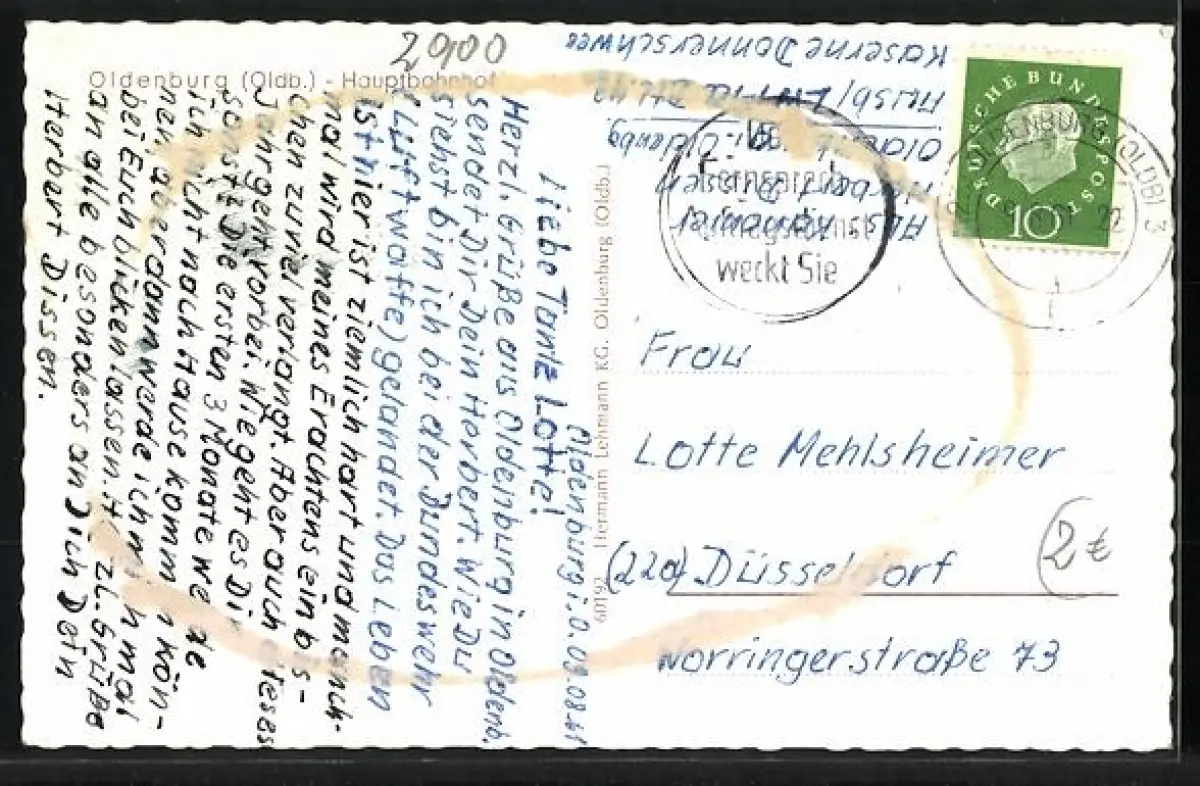 Oldenburg (Oldb.) - Hauptbahnhof
2900
Oldenburg i. O. 09.08.61
Liebe Tante Lotte!
Herzl. Grüße aus Oldenburg in Oldenb.
sendet Dir Dein Herbert. Wie Du
siehst bin ich bei der Bundeswehr
(Luftwaffe) gelandet. Das Leben
ist hier ist ziemlich hart und manch-
mal wird meines Erachtens ein bis-
chen zuviel verlangt. Aber auch dieses
Jahr geht vorbei. Wie geht es Dir
sonst? Die ersten 3 Monate werde
ich nicht nach Hause kommen kön-
nen, aber dann werde ich mich mal
bei Euch blicken lassen. Herzl. Grüße
an alle besonders an Dich Dein
Herbert Dissen.
60192 Hermann Lehmann KG. Oldenburg (Oldb.)
Abs. Kanonier
Herbert Dissen
Oldenburg i. Oldenbg
Kaserne Donnerschwee
Fernsprech-
Auftragsdienst
weckt Sie
OLDENBURG (OLDB) 3
22
DEUTSCHE BUNDESPOST
10
Frau
Lotte Mehlsheimer
(22a) Düsseldorf
Worringerstraße 73
2 €